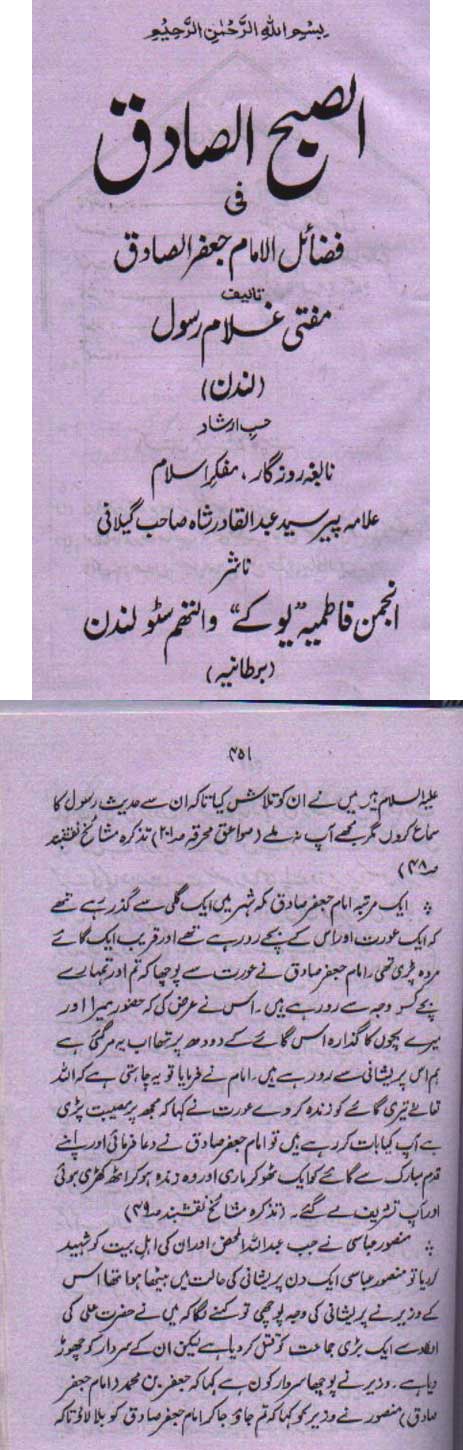 بِسْمِ اللّٰهِ الرَّحْمٰنِ الرَّحِيْمِ
الصبح الصادق
فی
فضائل الامام جعفر الصادق
تالیف
مفتی غلام رسول
(لندن)
حسب ارشاد
نابغہ روزگار، مفکر اسلام
علامہ پیر سید عبد القادر شاہ صاحب گیلانی
ناشر
انجمن فاطمیہ "یو کے" والتھم سٹو لندن
(برطانیہ)
۴۵۱
علیہ السلام ہیں میں نے ان کو تلاش کیا تاکہ ان سے حدیث رسول کا
سماع کروں مگر مجھے آپ نہ ملے (صواعق محرقہ ص۲۰۱) تذکرہ مشائخ نقشبند
ص۴۸)
ایک مرتبہ امام جعفر صادق مکہ شہر میں ایک گلی سے گذر رہے تھے
کہ ایک عورت اور اس کے بچے رو رہے تھے اور قریب ایک گائے
مردہ پڑی تھی۔ امام جعفر صادق نے عورت سے پوچھا کہ تم اور تمہارے
بچے کس وجہ سے رو رہے ہیں۔ اس نے عرض کی کہ حضور میرا اور
میرے بچوں کا گذارہ اس گائے کے دودھ پر تھا اب یہ مر گئی ہے
ہم اس پریشانی سے رو رہے ہیں۔ امام نے فرمایا تو یہ چاہتی ہے کہ اللہ
تعالےٰ تیری گائے کو زندہ کر دے عورت نے کہا کہ مجھ پر مصیبت پڑی
ہے آپ کیا بات کر رہے ہیں تو امام جعفر صادق نے دعا فرمائی اور اپنے
قدم مبارک سے گائے کو ایک ٹھوکر ماری اور وہ زندہ ہو کر اٹھ کھڑی ہوئی
اور آپ تشریف لے گئے۔ (تذکرہ مشائخ نقشبند ص۴۹)
منصور عباسی نے جب عبد اللہ المحض اور ان کی اہل بیت کو شہید
کر دیا تو منصور عباسی ایک دن پریشانی کی حالت میں بیٹھا ہوا تھا اس
کے وزیر نے پریشانی کی وجہ پوچھی تو کہنے لگا کہ میں نے حضرت علی کی
اولاد سے ایک بڑی جماعت کو قتل کر دیا ہے لیکن ان کے سردار کو چھوڑ
دیا ہے۔ وزیر نے پوچھا سردار کون ہے کہا کہ جعفر بن محمد (امام جعفر
صادق) منصور نے وزیر کو کہا کہ تم جاؤ جا کر امام جعفر صادق کو بلا لاؤ تاکہ